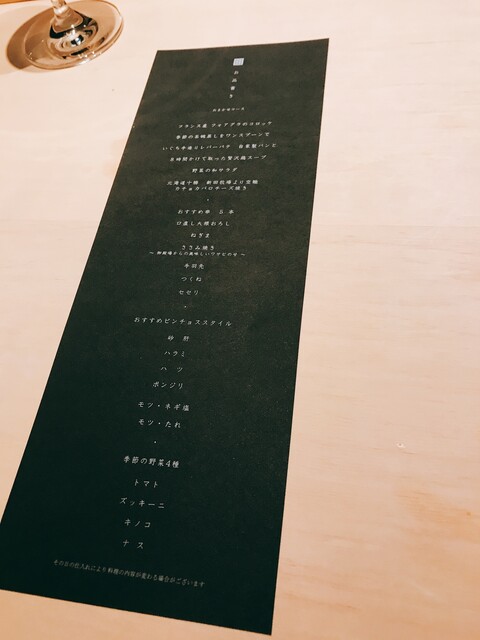 お品書き
おまかせコース
フランス産 フォアグラのコロッケ
季節の茶碗蒸しをワンスプーンで
いぐち手造りレバーパテ 自家製パンと
8時間かけて取った贅沢鶏スープ
野菜の和サラダ
北海道十勝 新田牧場より直輸
カチョカバロチーズ焼き
おすすめ串 5本
口直し大根おろし
ねぎま
ささみ焼き
～御殿場からの美味しいワサビのせ～
手羽先
つくね
セセリ
おすすめピンチョススタイル
砂 肝
ハラミ
ハ ツ
ボンジリ
モツ・ネギ塩
モツ・たれ
季節の野菜4種
トマト
ズッキーニ
キノコ
ナ ス
その日の仕入れにより料理の内容が変わる場合がございます